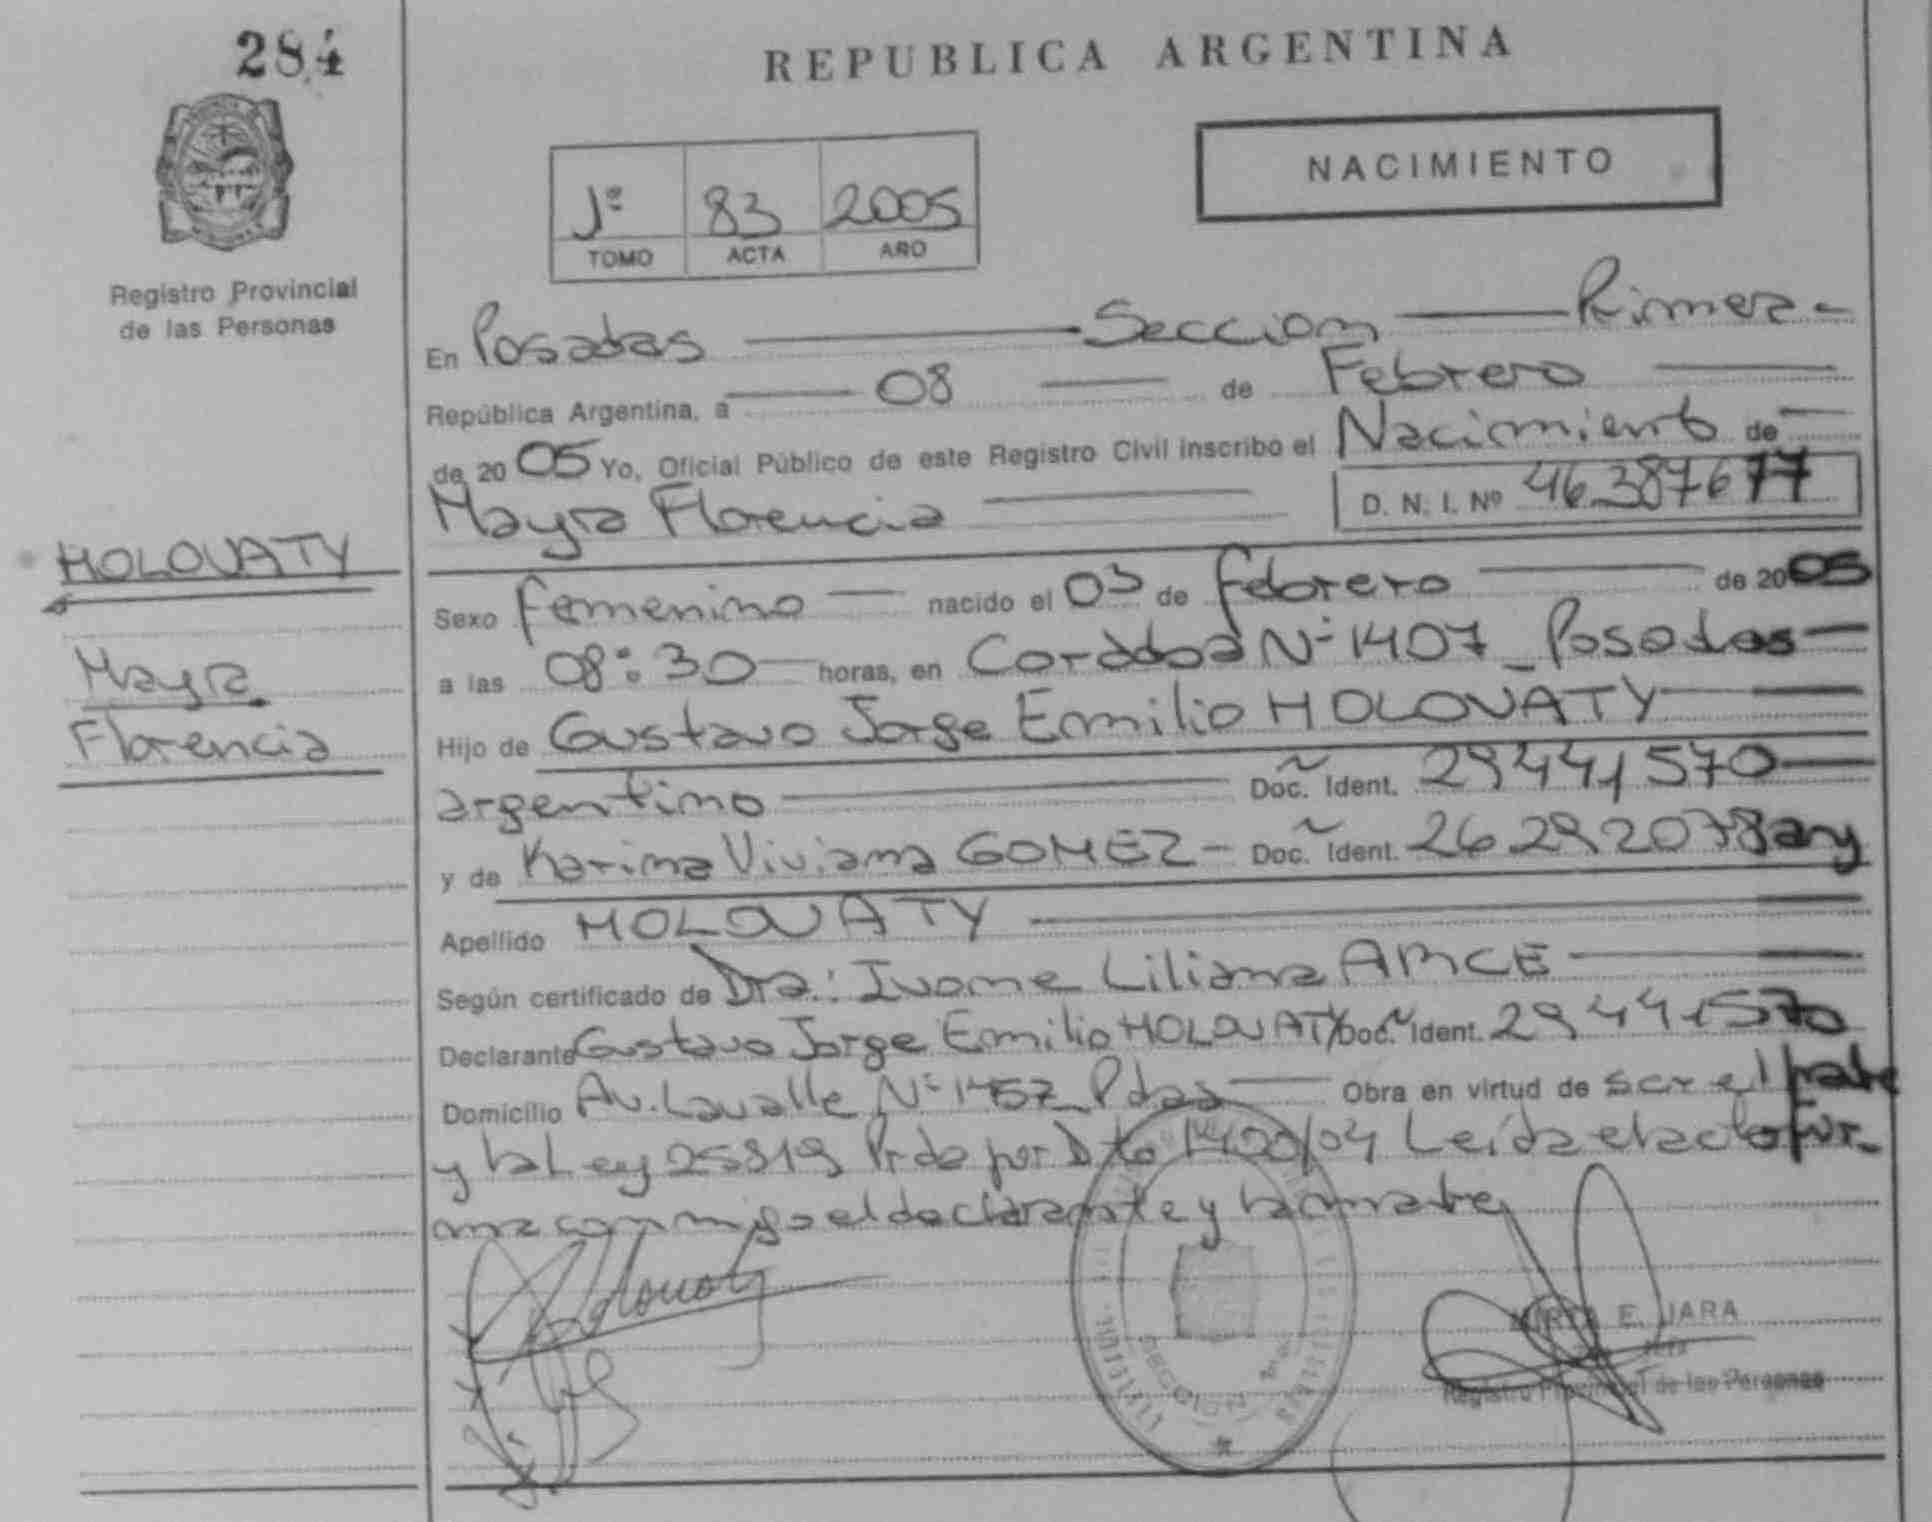 284
REPUBLICA ARGENTINA
NACIMIENTO
1º 83 2005
TOMO ACTA AÑO
Registro Provincial
de las Personas
En Posadas Seccion Primera
República Argentina, a 08 de Febrero
de 2005 Yo, Oficial Público de este Registro Civil inscribo el Nacimiento de
Mayra Florencia D. N. I. Nº 46.387677
HOLOVATY
Mayra
Florencia
Sexo femenino nacido el 03 de febrero de 2005
a las 08:30 horas, en Cordoba Nº 1407 _ Posadas
Hijo de Gustavo Jorge Emilio HOLOVATY
argentino Doc. Ident. 29441570
y de Karina Viviana GOMEZ - Doc. Ident. 26292078 arg
Apellido HOLOVATY
Según certificado de Dra.: Ivone Liliana ARCE
Declarante Gustavo Jorge Emilio HOLOVATY Doc. Ident. 29441570
Domicilio Av. Lavalle Nº 1457 _ Pdas Obra en virtud de ser el padre
y la Ley 25819 Prda por Dto 1420/04 Leída el acta fir-
ma conmigo el declarante y la madre
Holovaty
MIRTA E. JARA
Registro Provincial de las Personas
SECCION 1ra